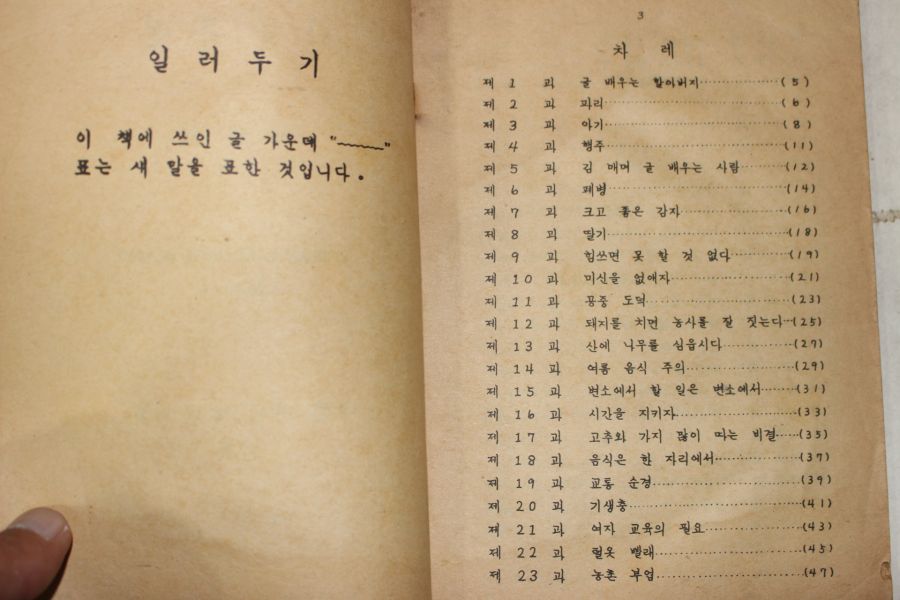 일 러 두 기
이 책에 쓰인 글 가운데 "﹏﹏"
표는 새 말을 표한 것입니다.
3
차 례
제 1 과 글 배우는 할아버지················(5)
제 2 과 파리················(6)
제 3 과 아기················(8)
제 4 과 행주················(11)
제 5 과 김 매며 글 배우는 사람········(12)
제 6 과 폐병················(14)
제 7 과 크고 좋은 감자················(16)
제 8 과 딸기················(18)
제 9 과 힘쓰면 못 할 것 없다········(19)
제 10 과 미신을 없애자················(21)
제 11 과 공중 도덕················(23)
제 12 과 돼지를 치면 농사를 잘 짓는다··(25)
제 13 과 산에 나무를 심읍시다········(27)
제 14 과 여름 음식 주의················(29)
제 15 과 변소에서 할 일은 변소에서·····(31)
제 16 과 시간을 지키자················(33)
제 17 과 고추와 가지 많이 따는 비결···(35)
제 18 과 음식은 한 자리에서········(37)
제 19 과 교통 순경················(39)
제 20 과 기생충················(41)
제 21 과 여자 교육의 필요········(43)
제 22 과 털옷 빨래················(45)
제 23 과 농촌 부업················(47)